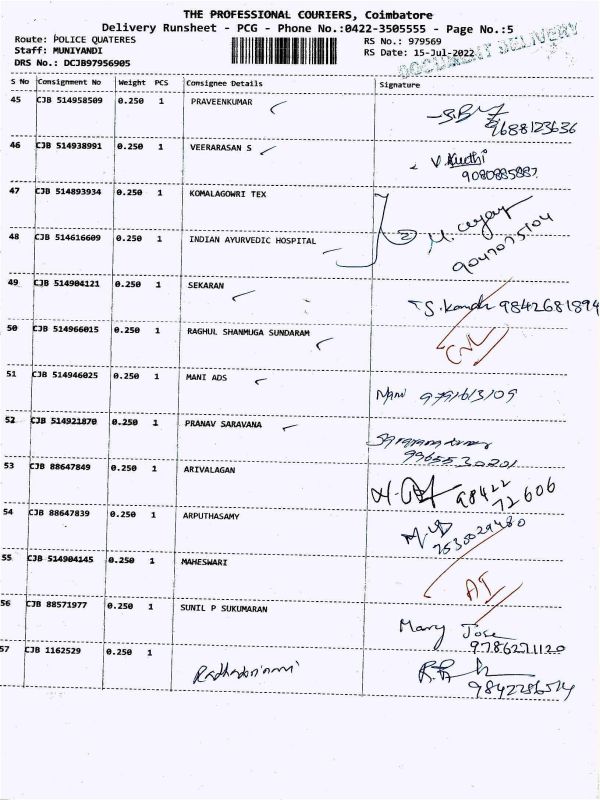 THE PROFESSIONAL COURIERS, Coimbatore
Delivery Runsheet - PCG - Phone No.:0422-3505555 - Page No.:5
Route: POLICE QUATERES
RS No.: 979569
Staff: MUNIYANDI
RS Date: 15-Jul-2022
DRS No.: DCJB97956905
DOCUMENT DELIVERY
S No Consignment No Weight PCS Consignee Details Signature
45 CJB 514958509 0.250 1 PRAVEENKUMAR
9688123636
46 CJB 514938991 0.250 1 VEERARASAN S
9080885887
47 CJB 514893934 0.250 1 KOMALAGOWRI TEX
48 CJB 514616609 0.250 1 INDIAN AYURVEDIC HOSPITAL
2
9047075104
49 CJB 514904121 0.250 1 SEKARAN
9842681894
50 CJB 514966015 0.250 1 RAGHUL SHANMUGA SUNDARAM
51 CJB 514946025 0.250 1 MANI ADS
Mani
52 CJB 514921870 0.250 1 PRANAV SARAVANA
9965530201
53 CJB 88647849 0.250 1 ARIVALAGAN
98422
72606
54 CJB 88647839 0.250 1 ARPUTHASAMY
7530029480
55 CJB 514904145 0.250 1 MAHESWARI
56 CJB 88571977 0.250 1 SUNIL P SUKUMARAN
Mary Jose
9786271120
57 CJB 1162529 0.250 1